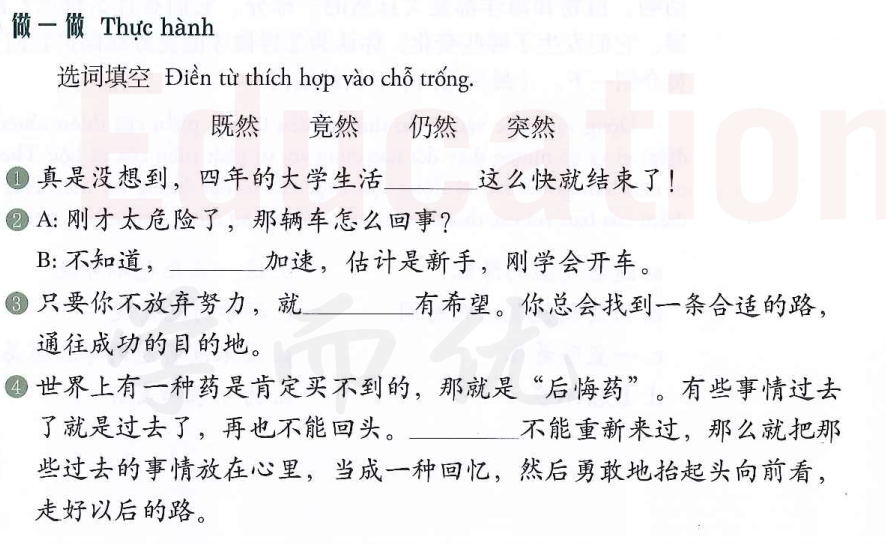 做一做 Thực hành
选词填空 Điền từ thích hợp vào chỗ trống.
既然 竟然 仍然 突然
① 真是没想到，四年的大学生活________这么快就结束了！
② A: 刚才太危险了，那辆车怎么回事？
B: 不知道，________加速，估计是新手，刚学会开车。
③ 只要你不放弃努力，就________有希望。你总会找到一条合适的路，
通往成功的目的地。
④ 世界上有一种药是肯定买不到的，那就是“后悔药”。有些事情过去
了就是过去了，再也不能回头。________不能重新来过，那么就把那
些过去的事情放在心里，当成一种回忆，然后勇敢地抬起头向前看，
走好以后的路。
Education
学而优